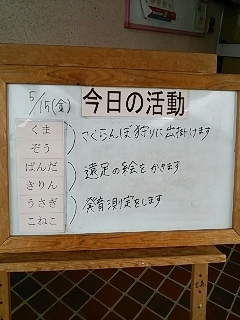 5/15(金) 今日の活動
くま
ぞう
さくらんぼ狩りに出掛けます
ぱんだ
きりん
遠足の絵をかきます
うさぎ
こねこ
発育測定をします